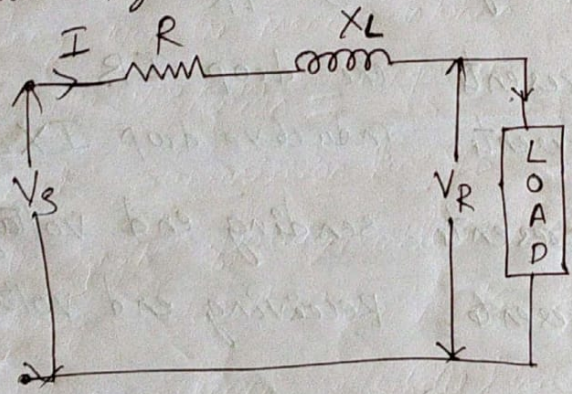 I R XL
VS
VR
L
O
A
D